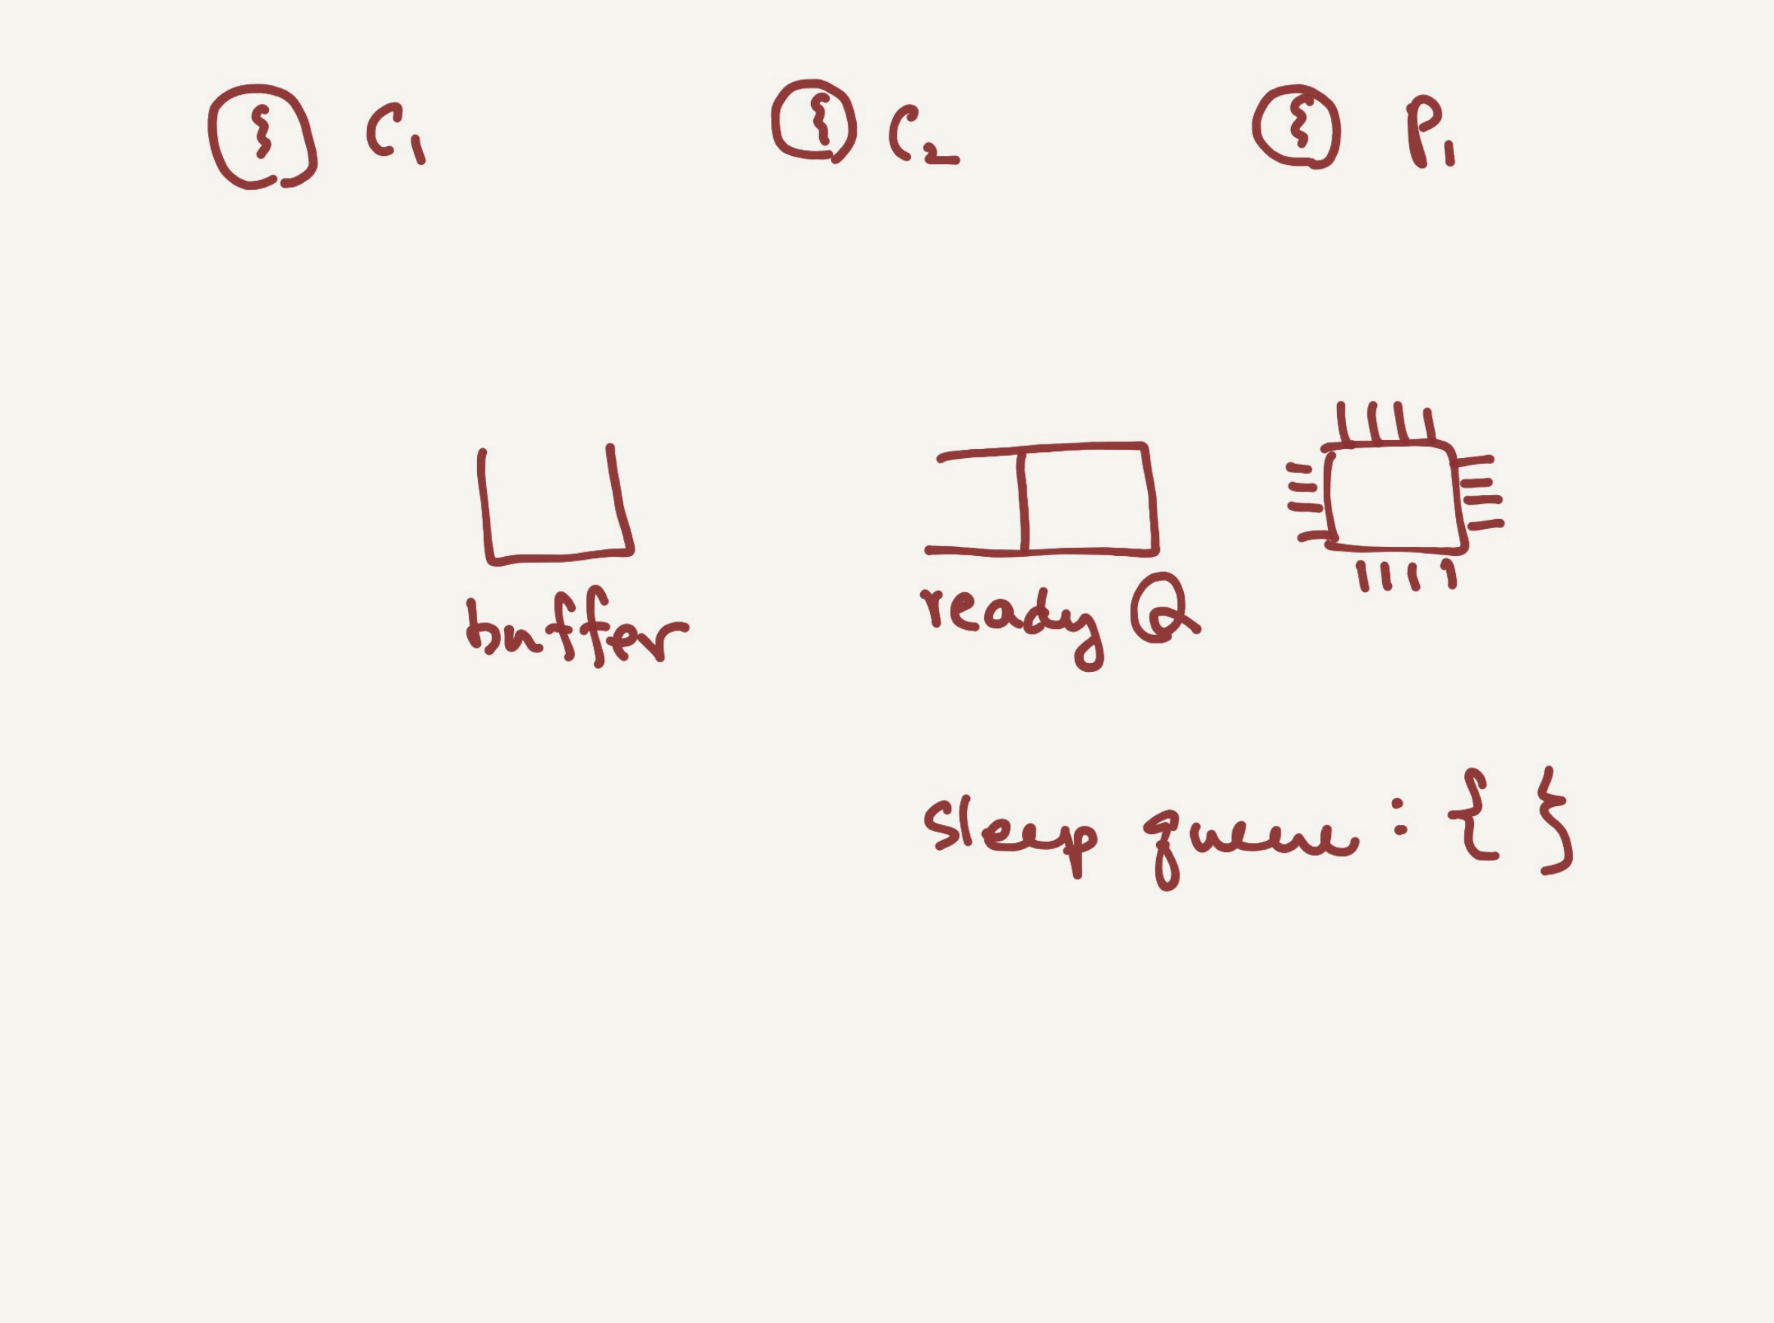 C₁ C₂ P₁
buffer ready Q
sleep queue : { }